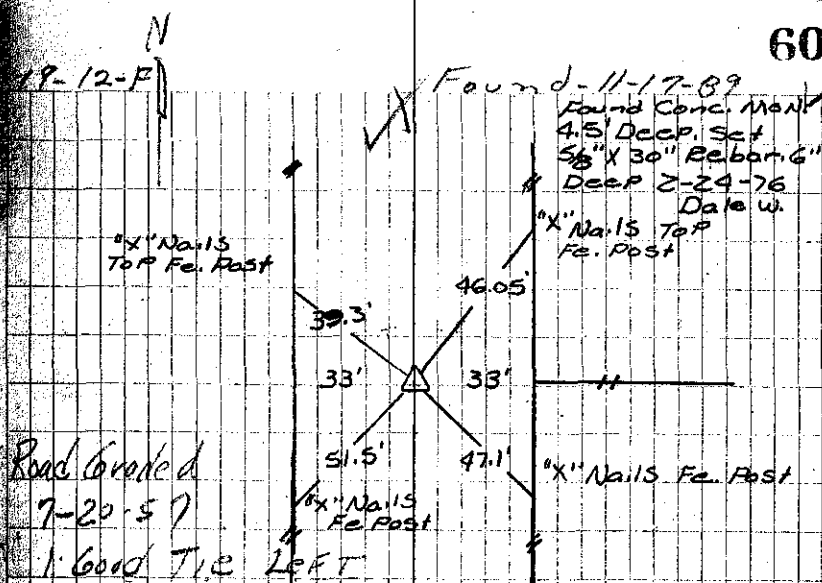 60
N
19-12-F
Found-11-17-89
Found Conc. Mon.
4.5' Deep. Set
5/8" X 30" Rebar. 6"
Deep 2-24-76
Dale W.
"X" Nails
Top Fe. Post
"X" Nails Top
Fe. Post
46.05'
33'
33'
51.5'
47.1'
"X" Nails Fe. Post
"X" Nails
Fe Post
Road Graded
7-20-57
1 Good Tie Left